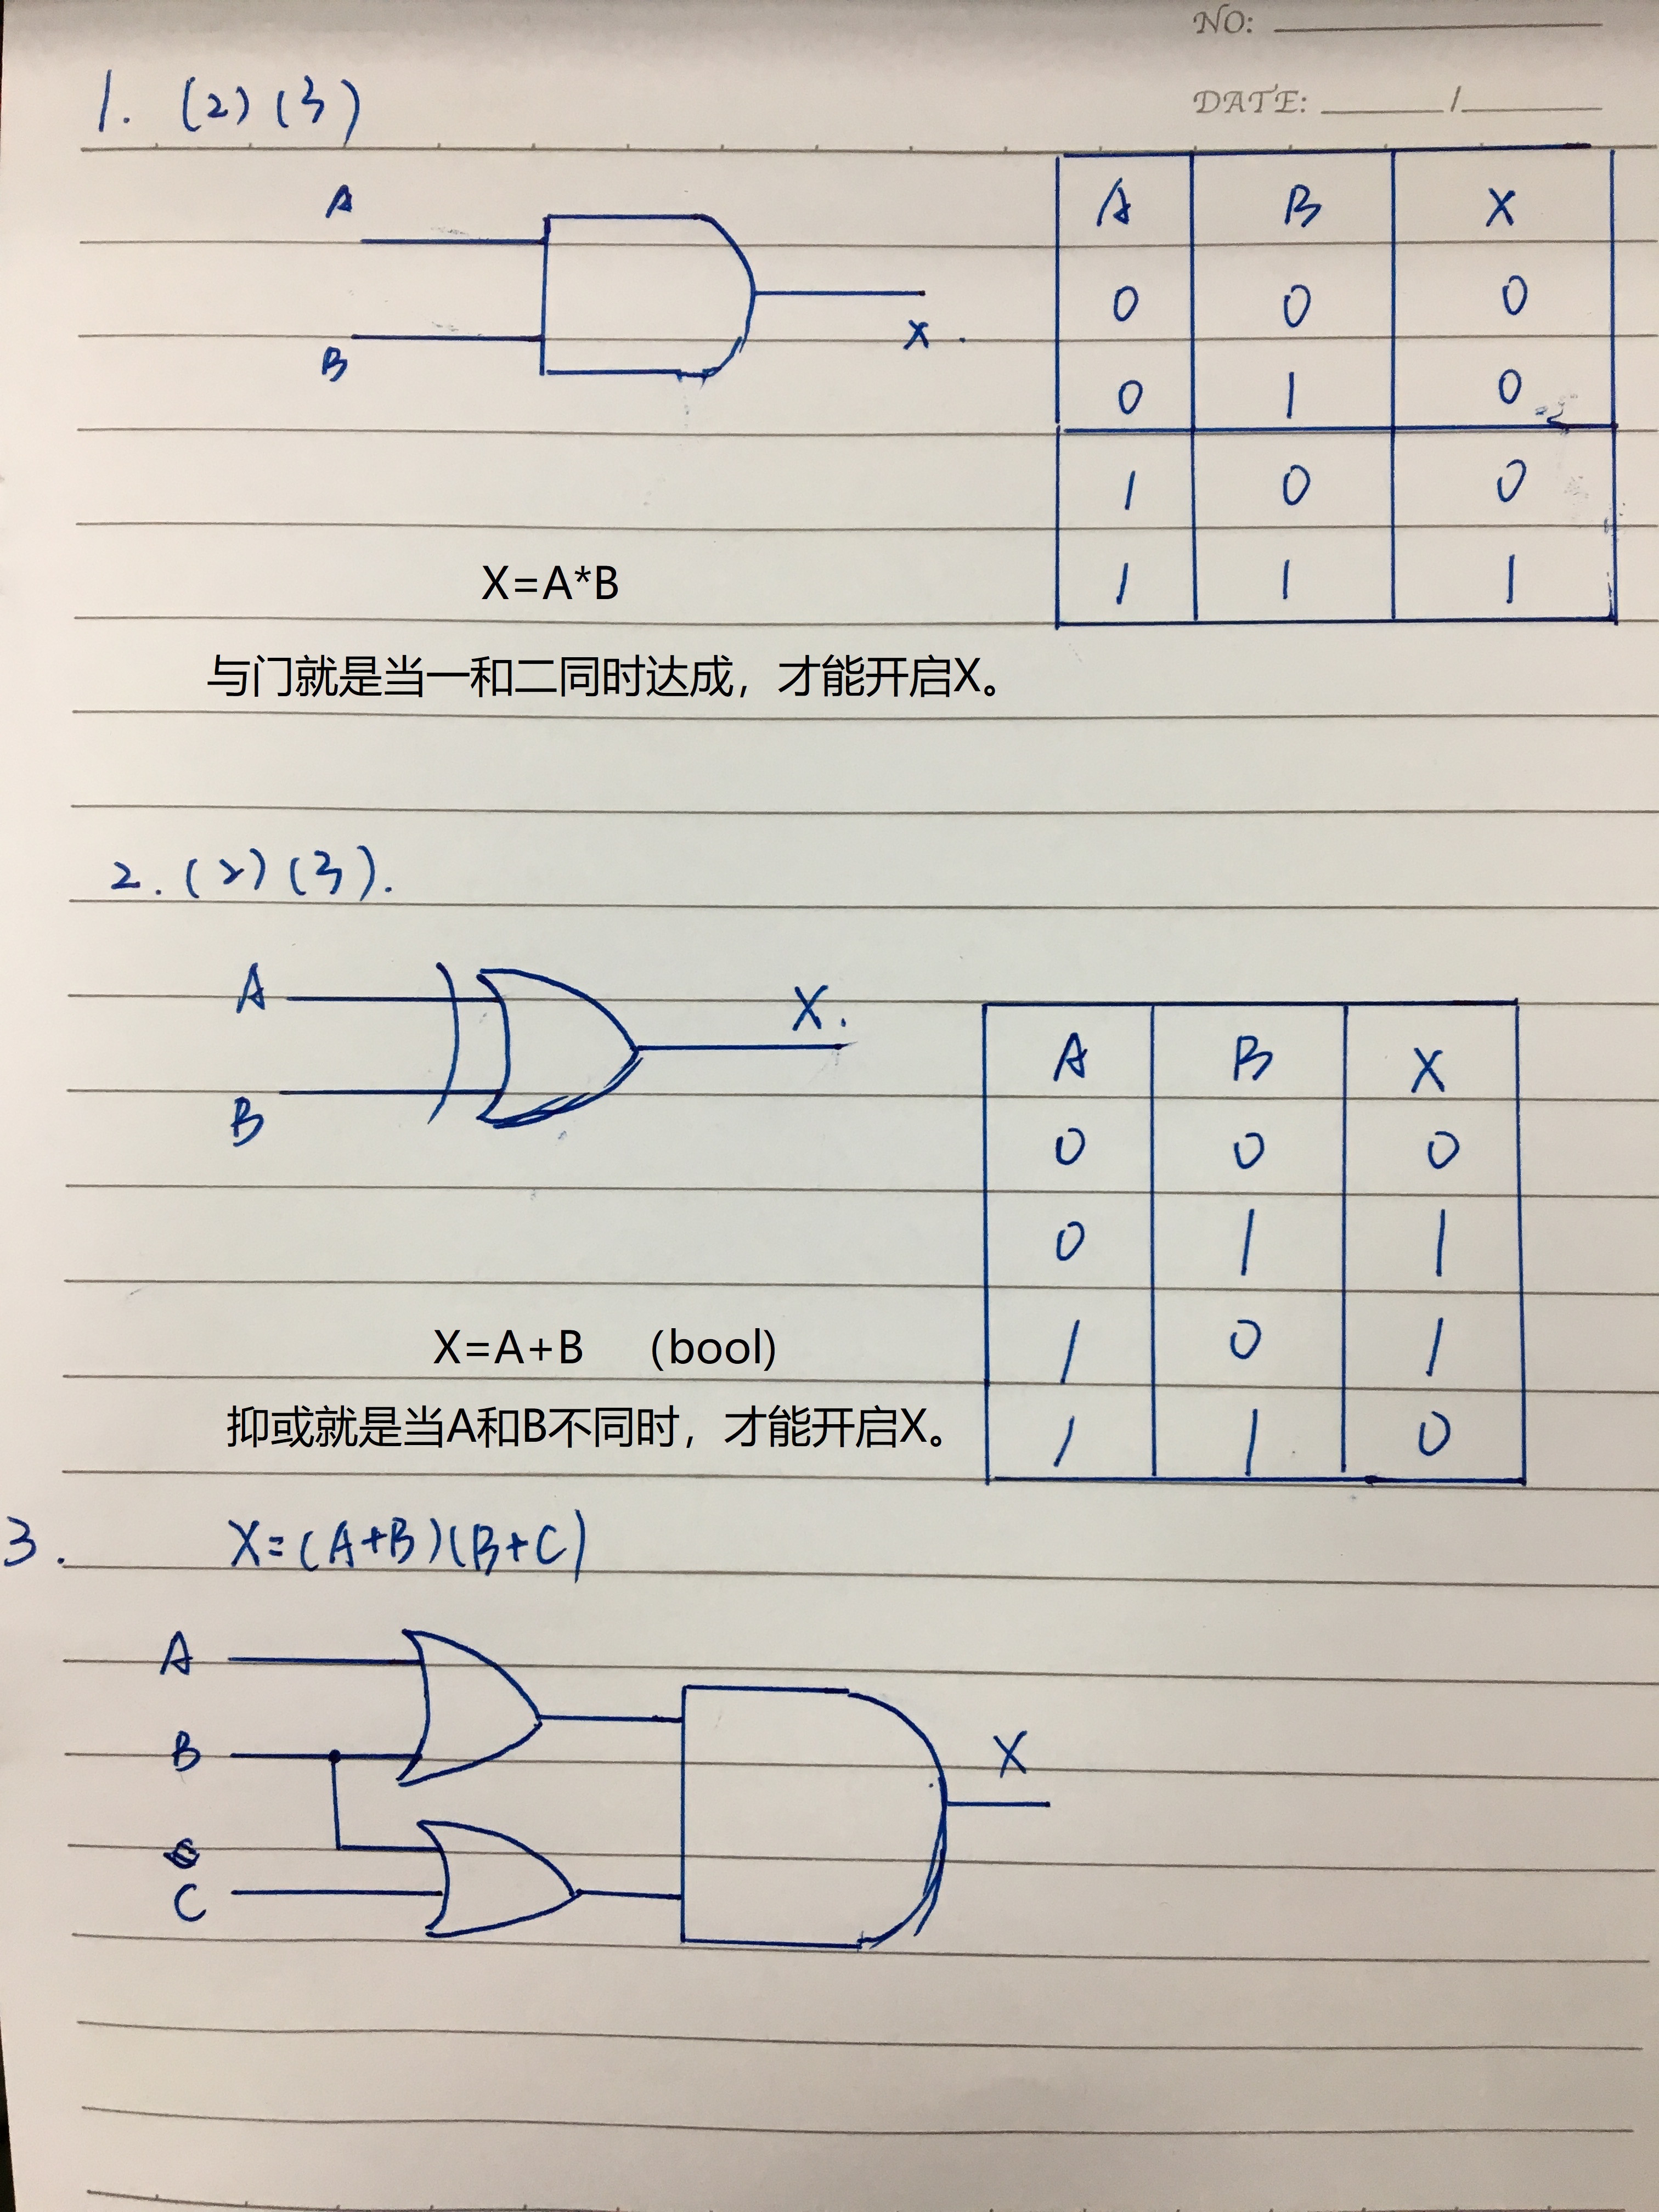 NO:
DATE: /
1. (2) (3)
A
B
X.
A B X
0 0 0
0 1 0
1 0 0
1 1 1
X=A*B
与门就是当一和二同时达成，才能开启X。
2. (2) (3).
A
B
X.
A B X
0 0 0
0 1 1
1 0 1
1 1 0
X=A+B (bool)
抑或就是当A和B不同时，才能开启X。
3. X=(A+B)(B+C)
A
B
C
X